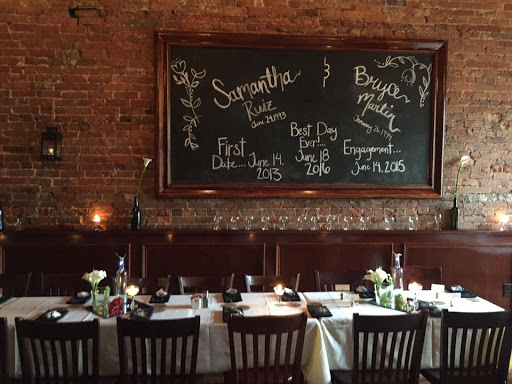 Samantha & Bryce
Ruiz Martin
June 24, 1993 January 26, 1994
First
Date... June 14,
2013
Best Day
Ever!...
June 18
2016
Engagement...
June 14, 2015